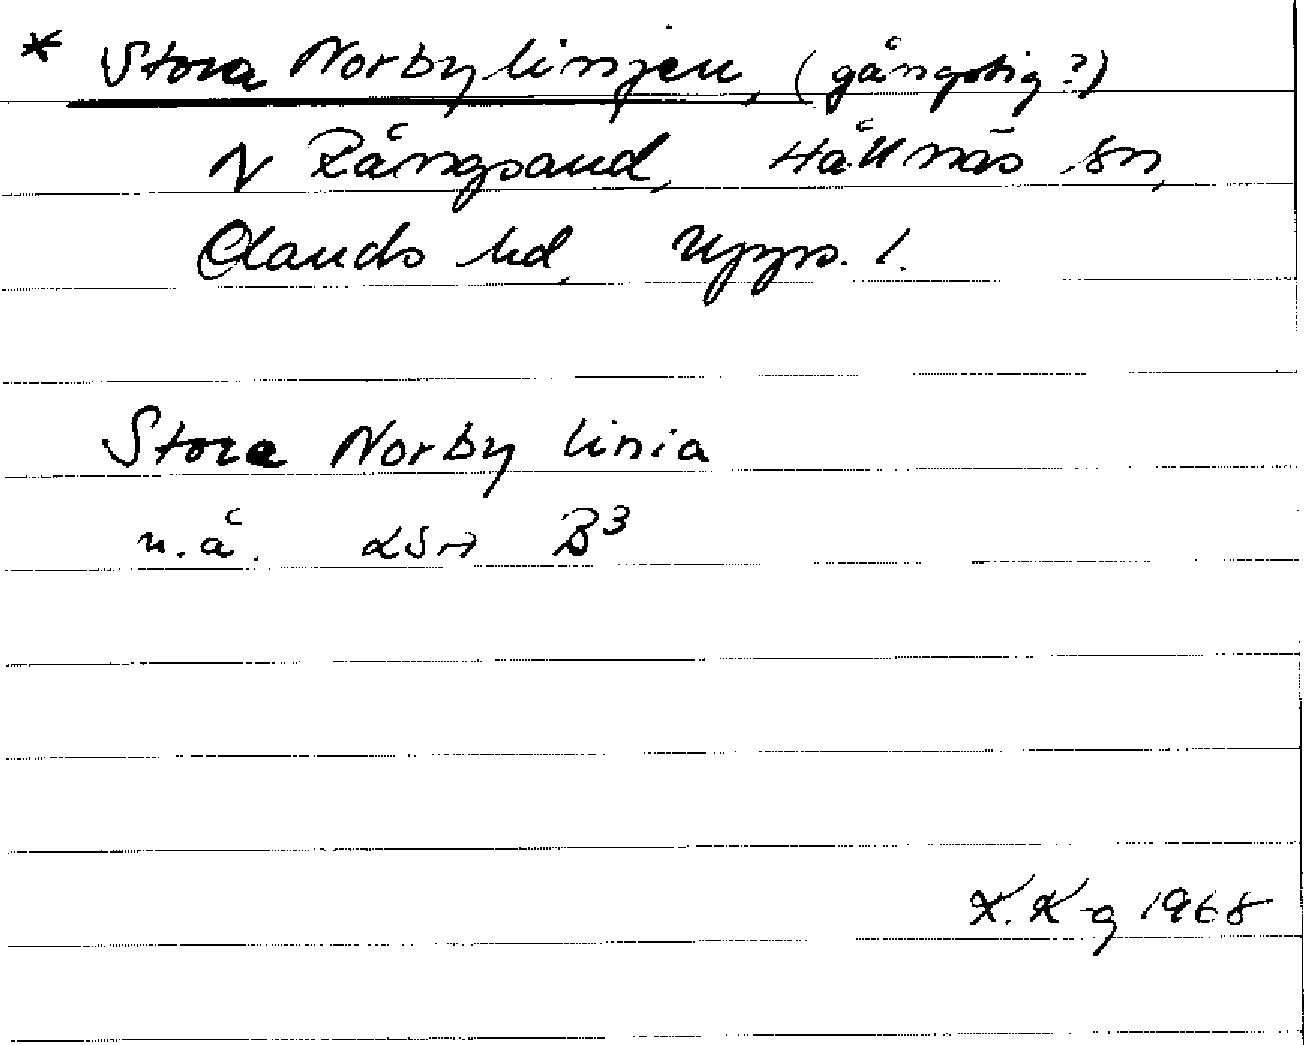 * Stora Norbylinjen, (gångstig?)
N Rångsand, Hållnäs sn,
Olands hd, Upps. l.
Stora Norby linia
n.å. LSA B³
K. K-g 1968